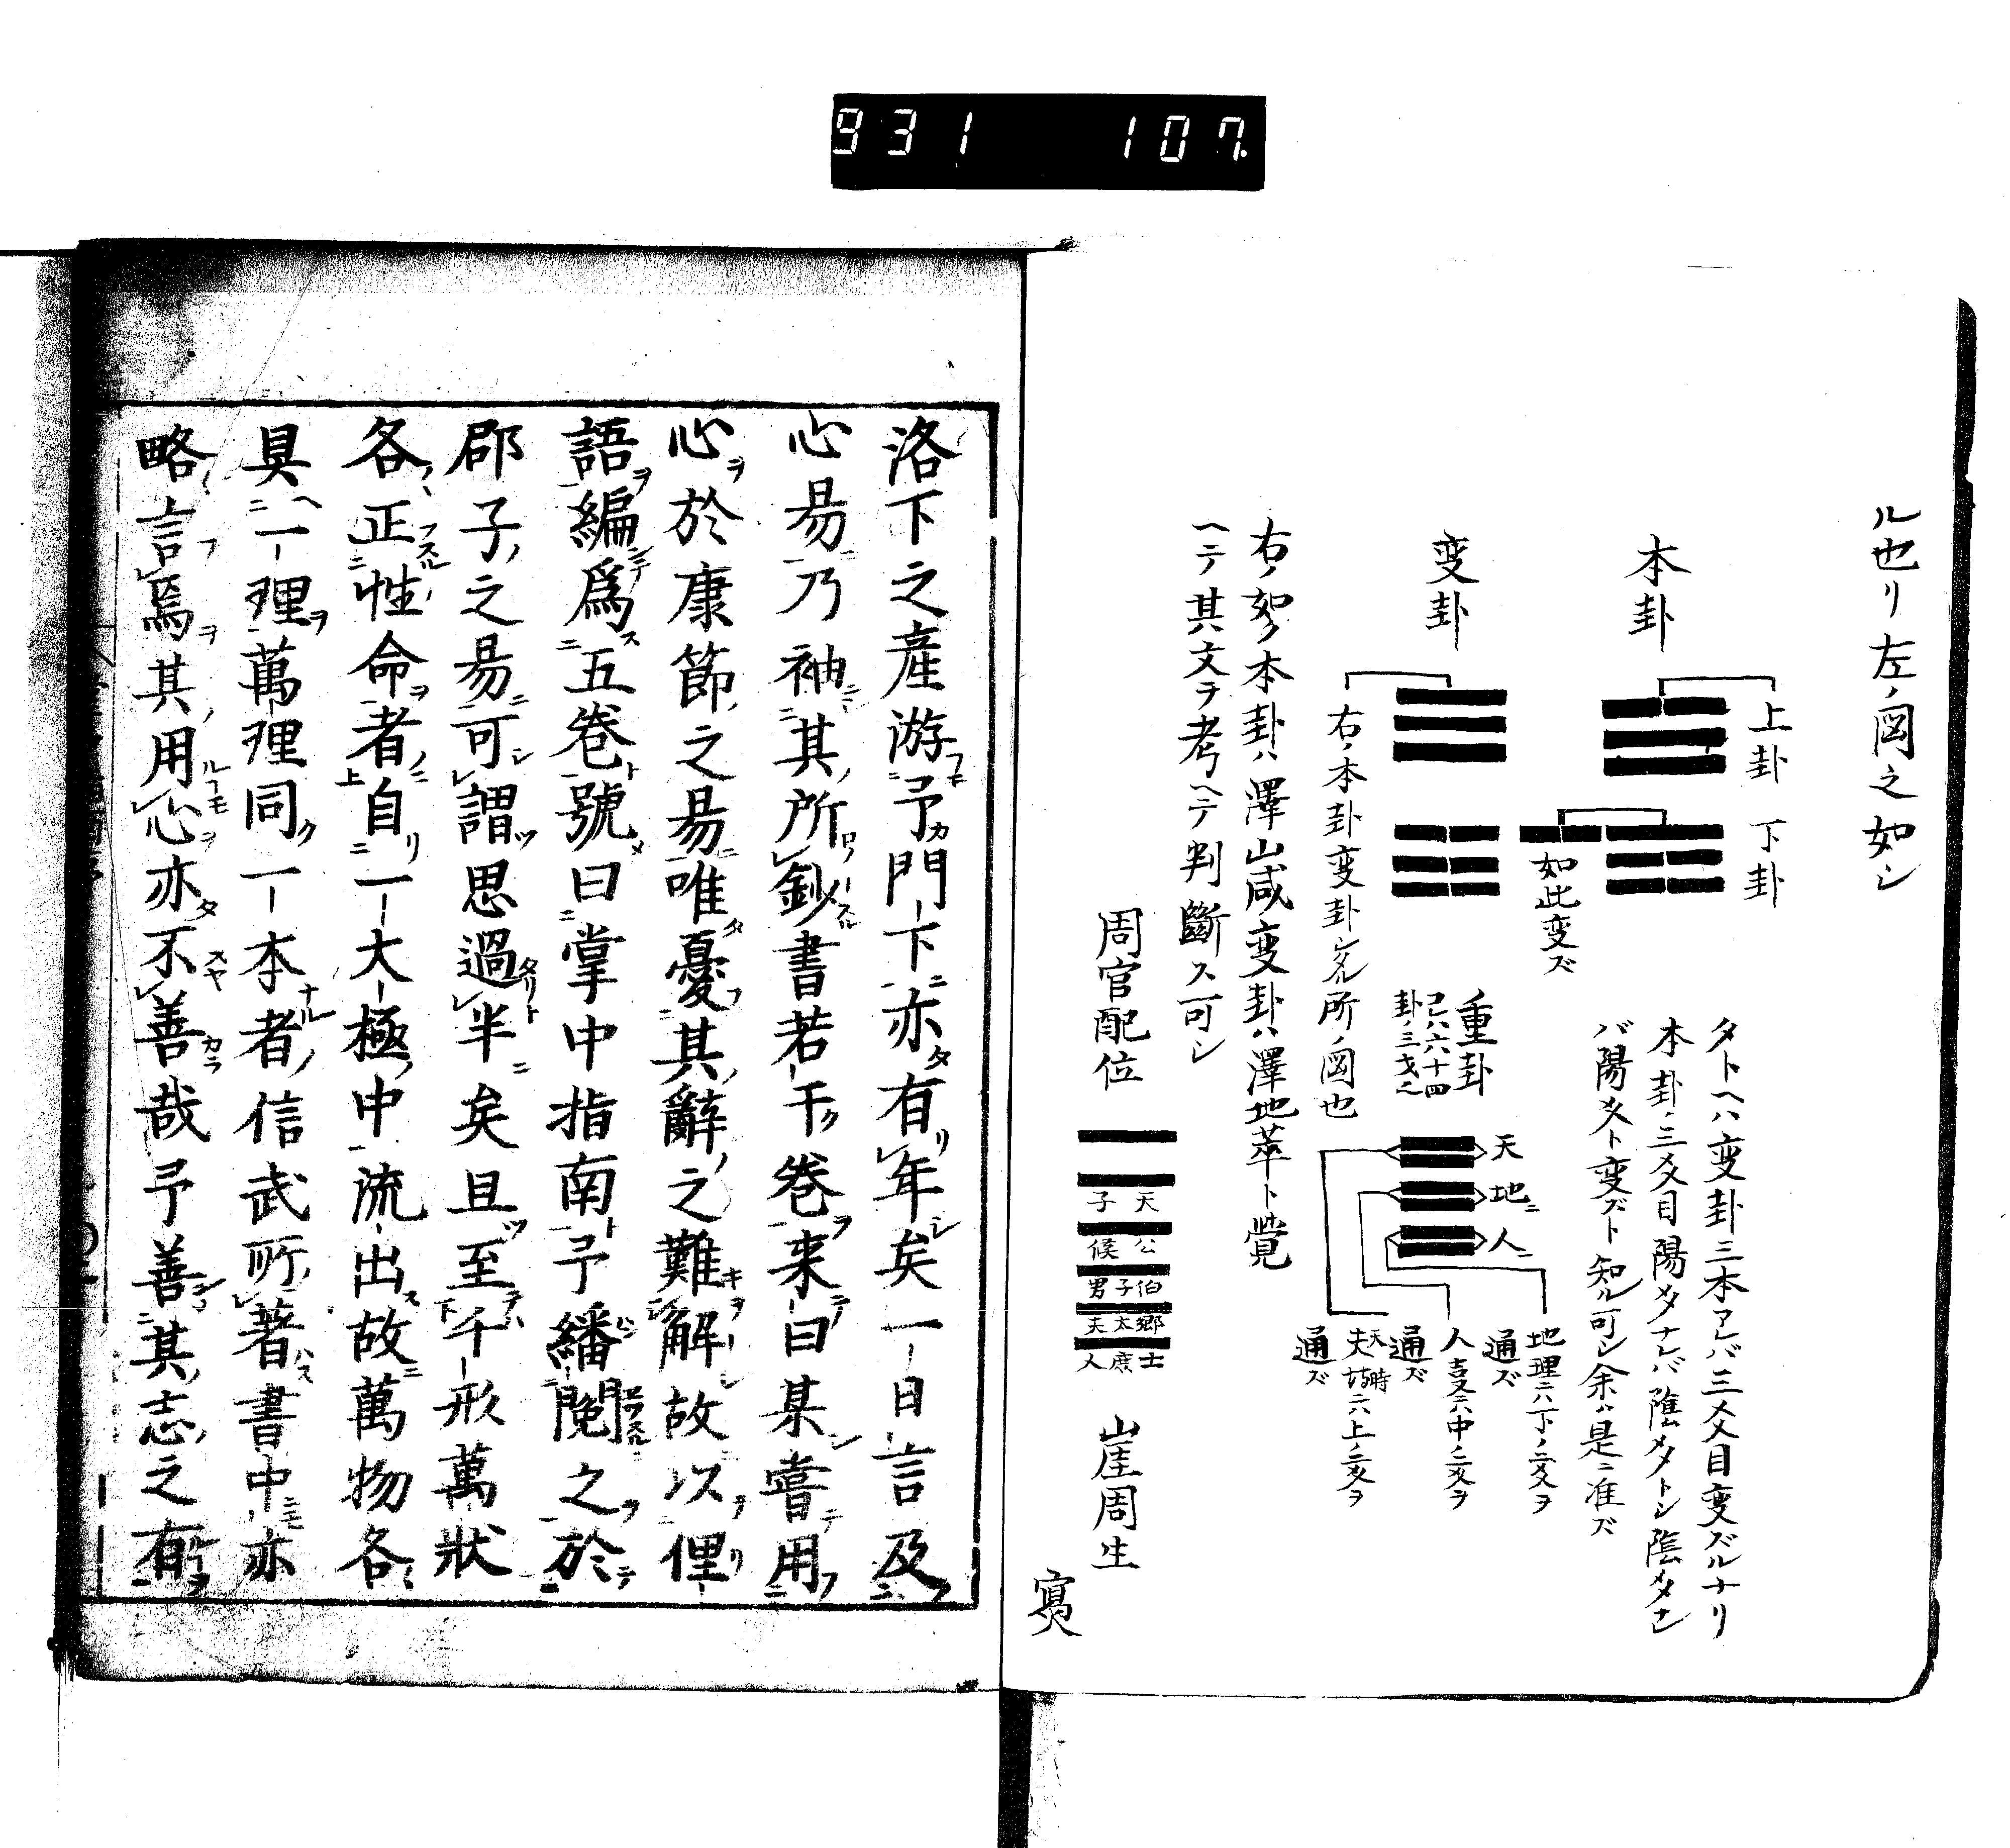 931 107
ル也リ左ノ図之如シ
本卦
上卦
下卦
如此変ズ
タトヘハ変卦三本アレバ三爻目変ズルナリ
本卦ノ三爻目陽爻ナレバ陰爻トシ陰爻ナレ
バ陽爻ト変ズト知ル可シ余ハ是ニ准ズ
変卦
右ノ本卦変卦シタル所ノ図也
重卦
己ハ六十四
卦ノ三才之
天
地ニ
人ニ
地理ニハ下ノ二爻ヲ
通ズ
人吉ニハ中ノ二爻ヲ
通ズ
天時ニハ上ノ二爻ヲ
通ズ
右ノ如ク本卦ハ澤山咸変卦ハ澤地萃ト覚
ヘテ其文ヲ考ヘテ判斷ス可シ
周官配位
天子
公侯
伯子男
郷太夫
士庶人
崖周生
寫
洛下之産游予門下亦有年矣一日言及
心昜乃袖其所鈔書若干巻来曰某嘗用
心於康節之昜唯憂其辭之難解故以俚
語編爲五巻號曰掌中指南予繙閲之於
郡子之昜可謂思過半矣且至千形萬狀
各正性命者自一大極中流出故萬物各
具一理萬理同一本者信武所著書中亦
略言焉其用心亦不善哉予善其志之有